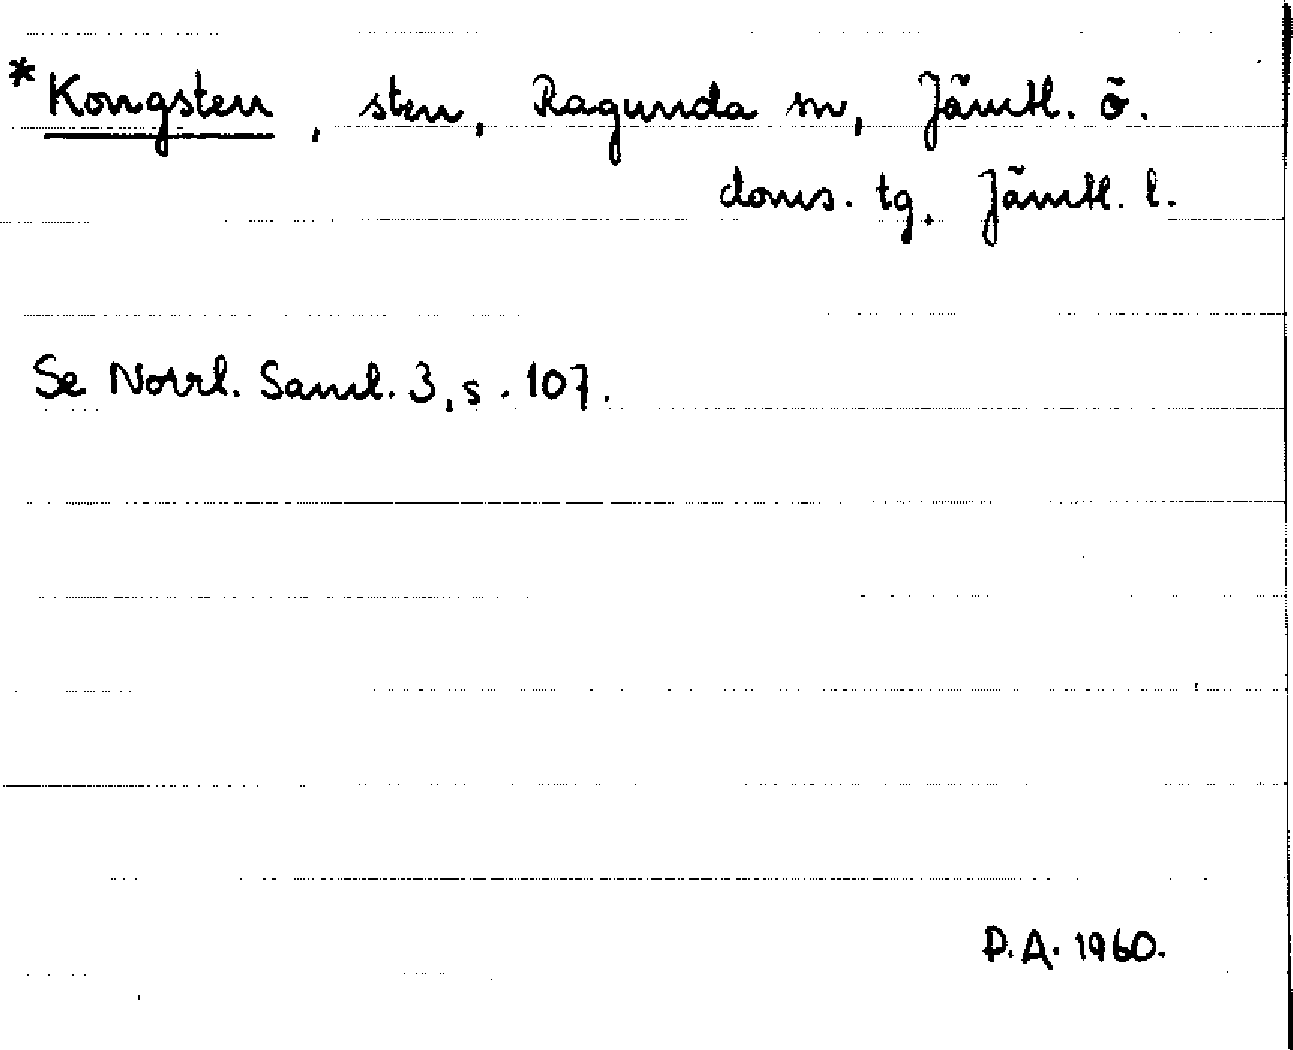 *Kongsten, sten, Ragunda sn, Jämtl. ö.
doms. tg. Jämtl. l.
Se Norrl. Saml. 3, s. 107.
D.A. 1960.